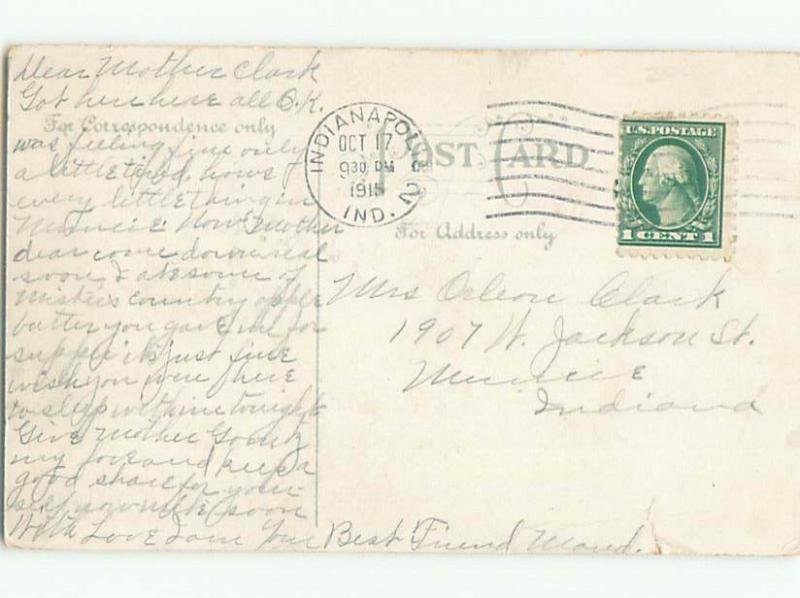 Dear Mother Clark
Got here all O.K.
For Correspondence only
was feeling fine only
a little tired, hows
every little thing in
Muncie. Now Mother
dear come down real
soon, I ate some of
country apple
butter you gave me for
supper it's just fine
wish you were here
to sleep with me tonight
Give Mother
my love and keep a
good share for your-
self now write soon
With Love I am Your Best Friend Maud.
INDIANAPOLIS
OCT 17
930 PM
1915
IND.
2
POST CARD
For Address only
U.S. POSTAGE
1 CENT 1
Mrs Orleon Clark
1907 W. Jackson St.
Muncie
Indiana